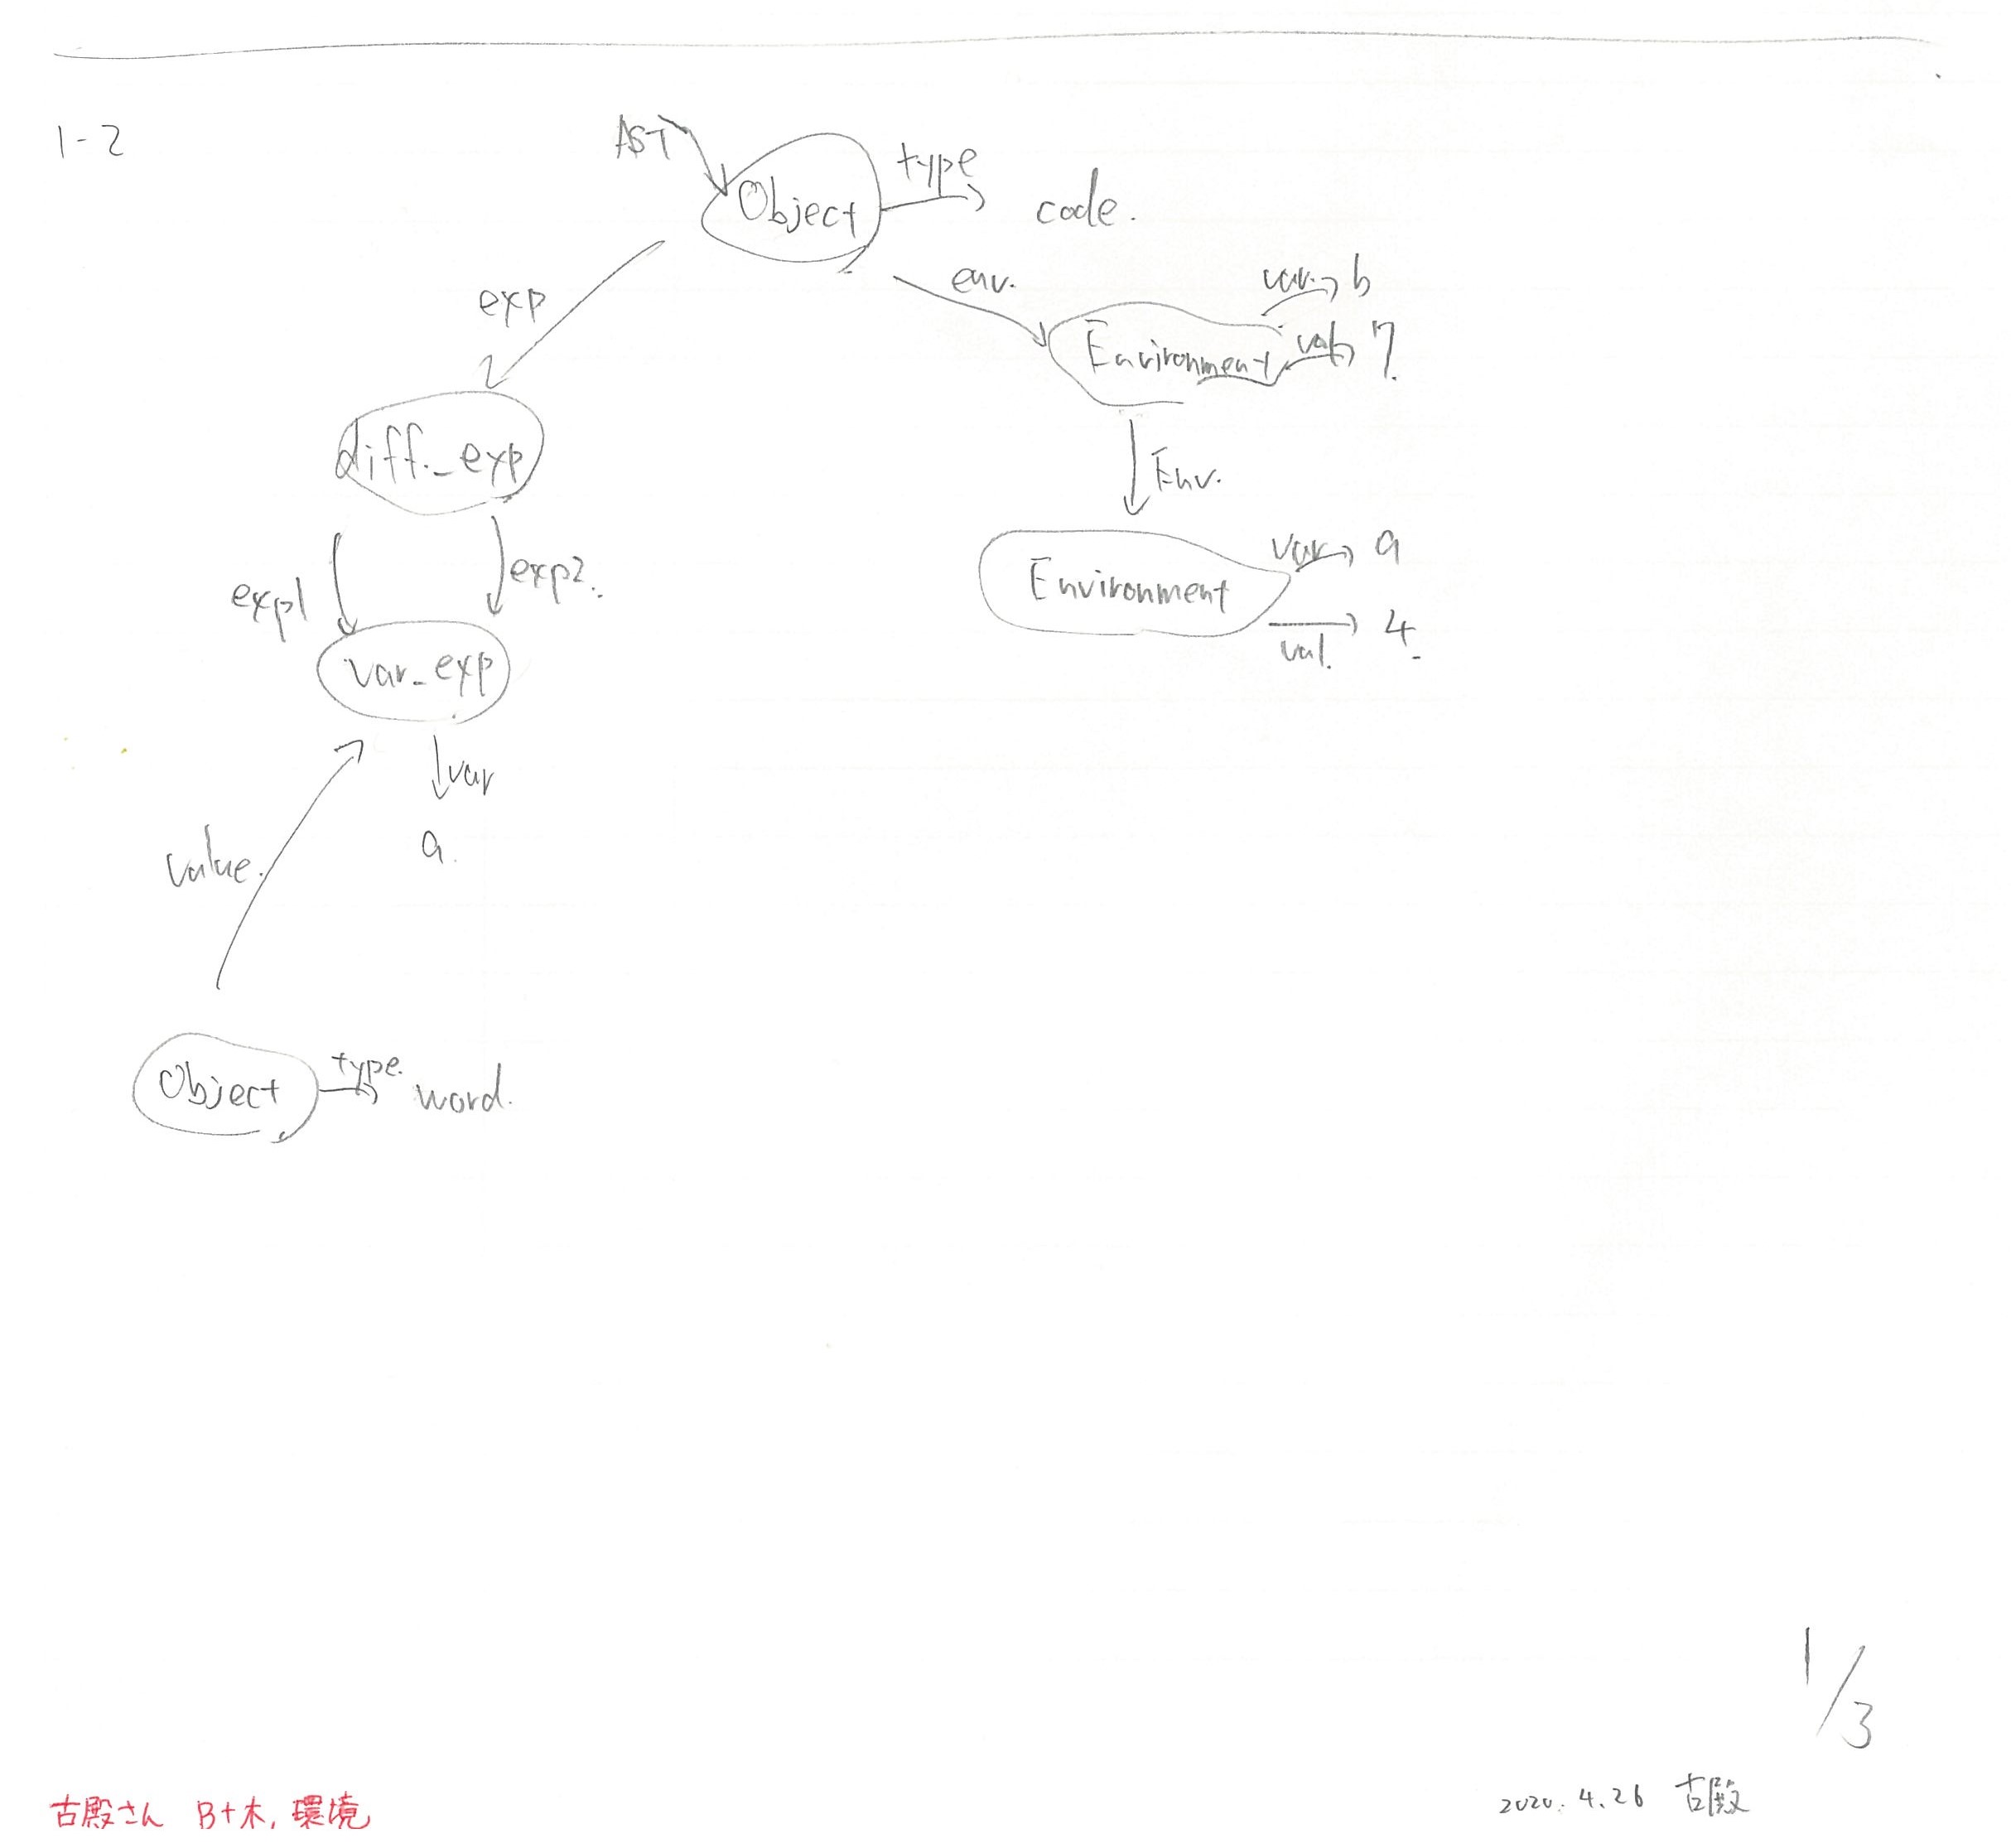 1-2
AST
Object
type
code.
exp
env.
Environment
var.
b
val
7.
diff._exp
Env.
exp1
exp2.
Environment
var
a
val.
4.
var_exp
var
a.
value.
Object
type.
word.
1/3
古殿さん B+木, 環境
2020. 4. 26 古殿